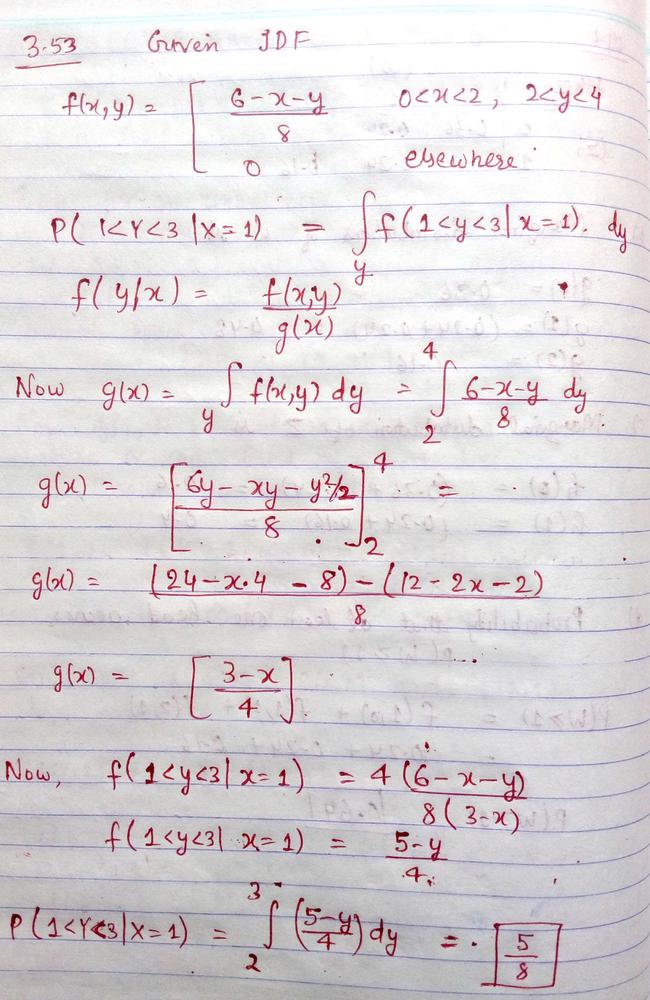 3.53 Given JDF
f(x,y) = [ (6-x-y)/8 0<x<2, 2<y<4
0 elsewhere.
P( 1<Y<3 | X=1) = ∫_y f(1<y<3 | x=1). dy
f( y/x) = f(x,y)/g(x)
Now g(x) = ∫_y f(x,y) dy = ∫_2^4 (6-x-y)/8 dy.
g(x) = [ (6y - xy - y²/2)/8 ]_2^4 =
g(x) = ((24-x.4 - 8) - (12 - 2x - 2))/8
g(x) = [ (3-x)/4 ]
Now, f(1<y<3 | x=1) = 4(6-x-y)/8(3-x)
f(1<y<3 | x=1) = (5-y)/4
P(1<Y<3 | X=1) = ∫_2^3 ((5-y)/4) dy = 5/8